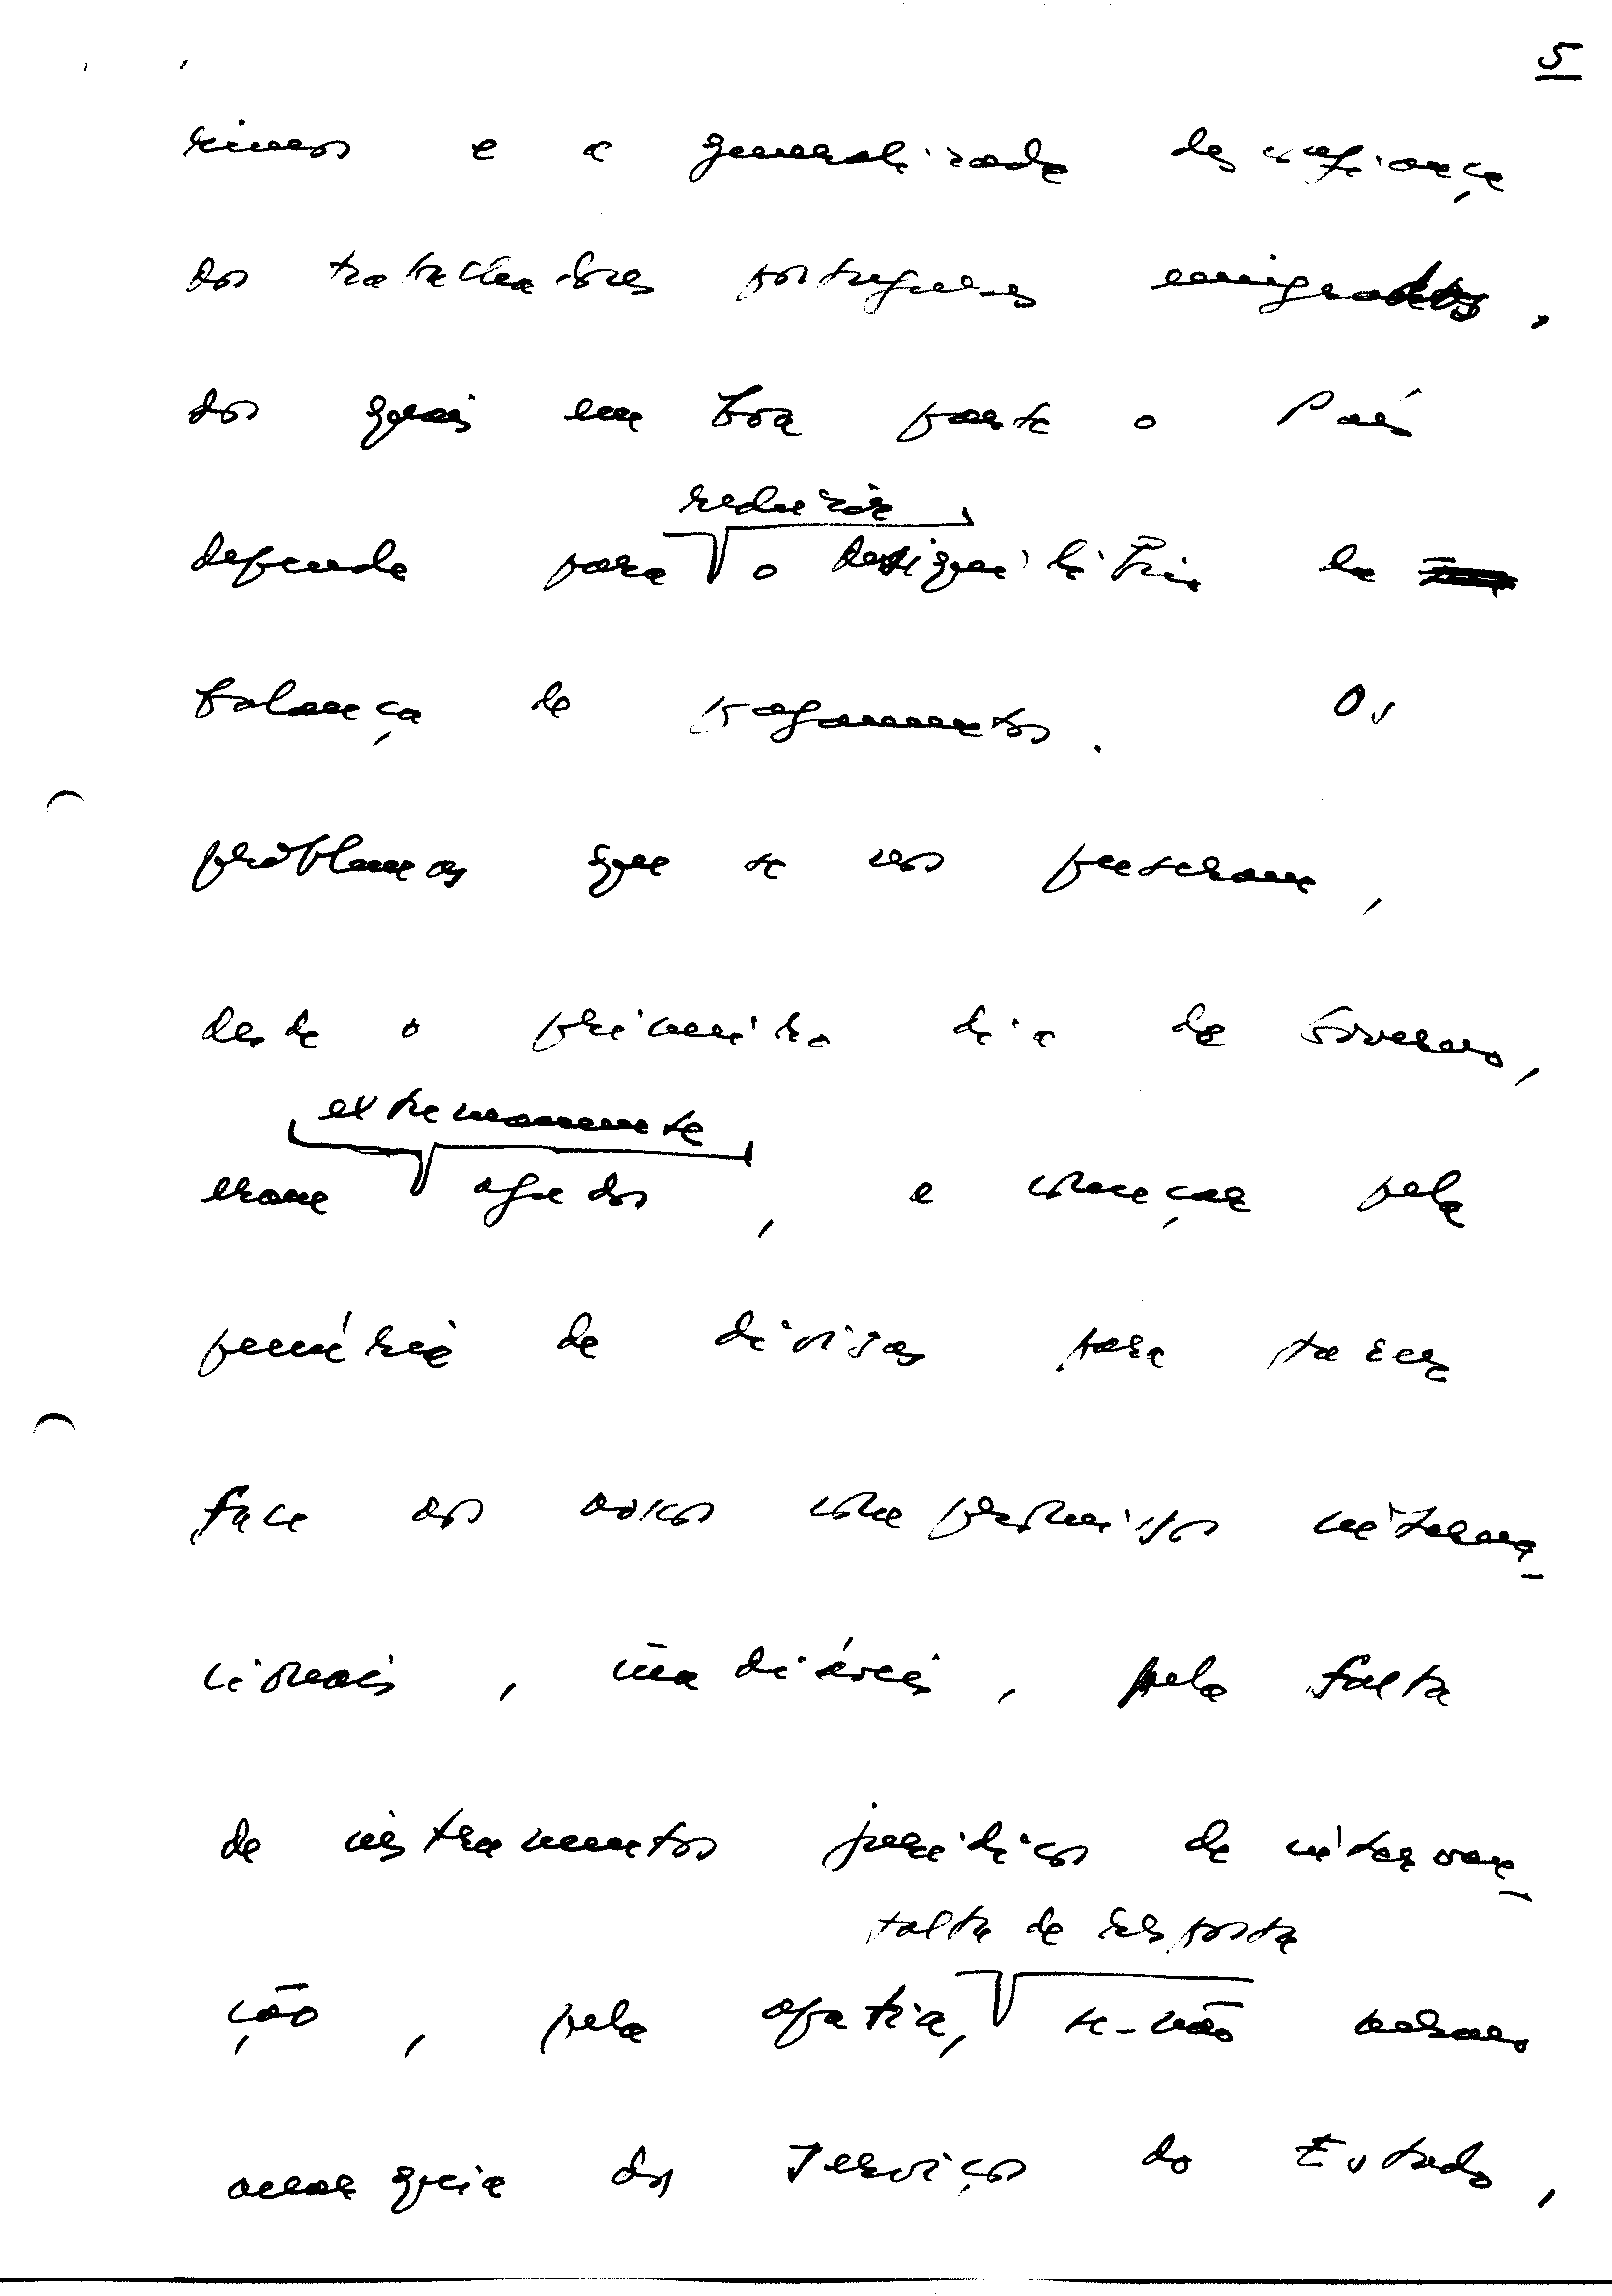 5
rimos e a generalizada desconfiança
dos trabalhadores portugueses emigrados,
dos quais em boa parte o País
reduzir
depende para o desiquilíbrio da
balança de pagamentos. Os
problemas que se nos puseram,
desde o primeiro dia de Governo,
extremamente
eram agudos, a começar pela
penúria de divisas para fazer
face aos nossos compromissos interna-
cionais, inadiáveis, pela falta
de instrumentos jurídicos de interven-
falta de resposta
ção, pela apatia, se-não mesmo
anarquia dos Serviços do Estado,